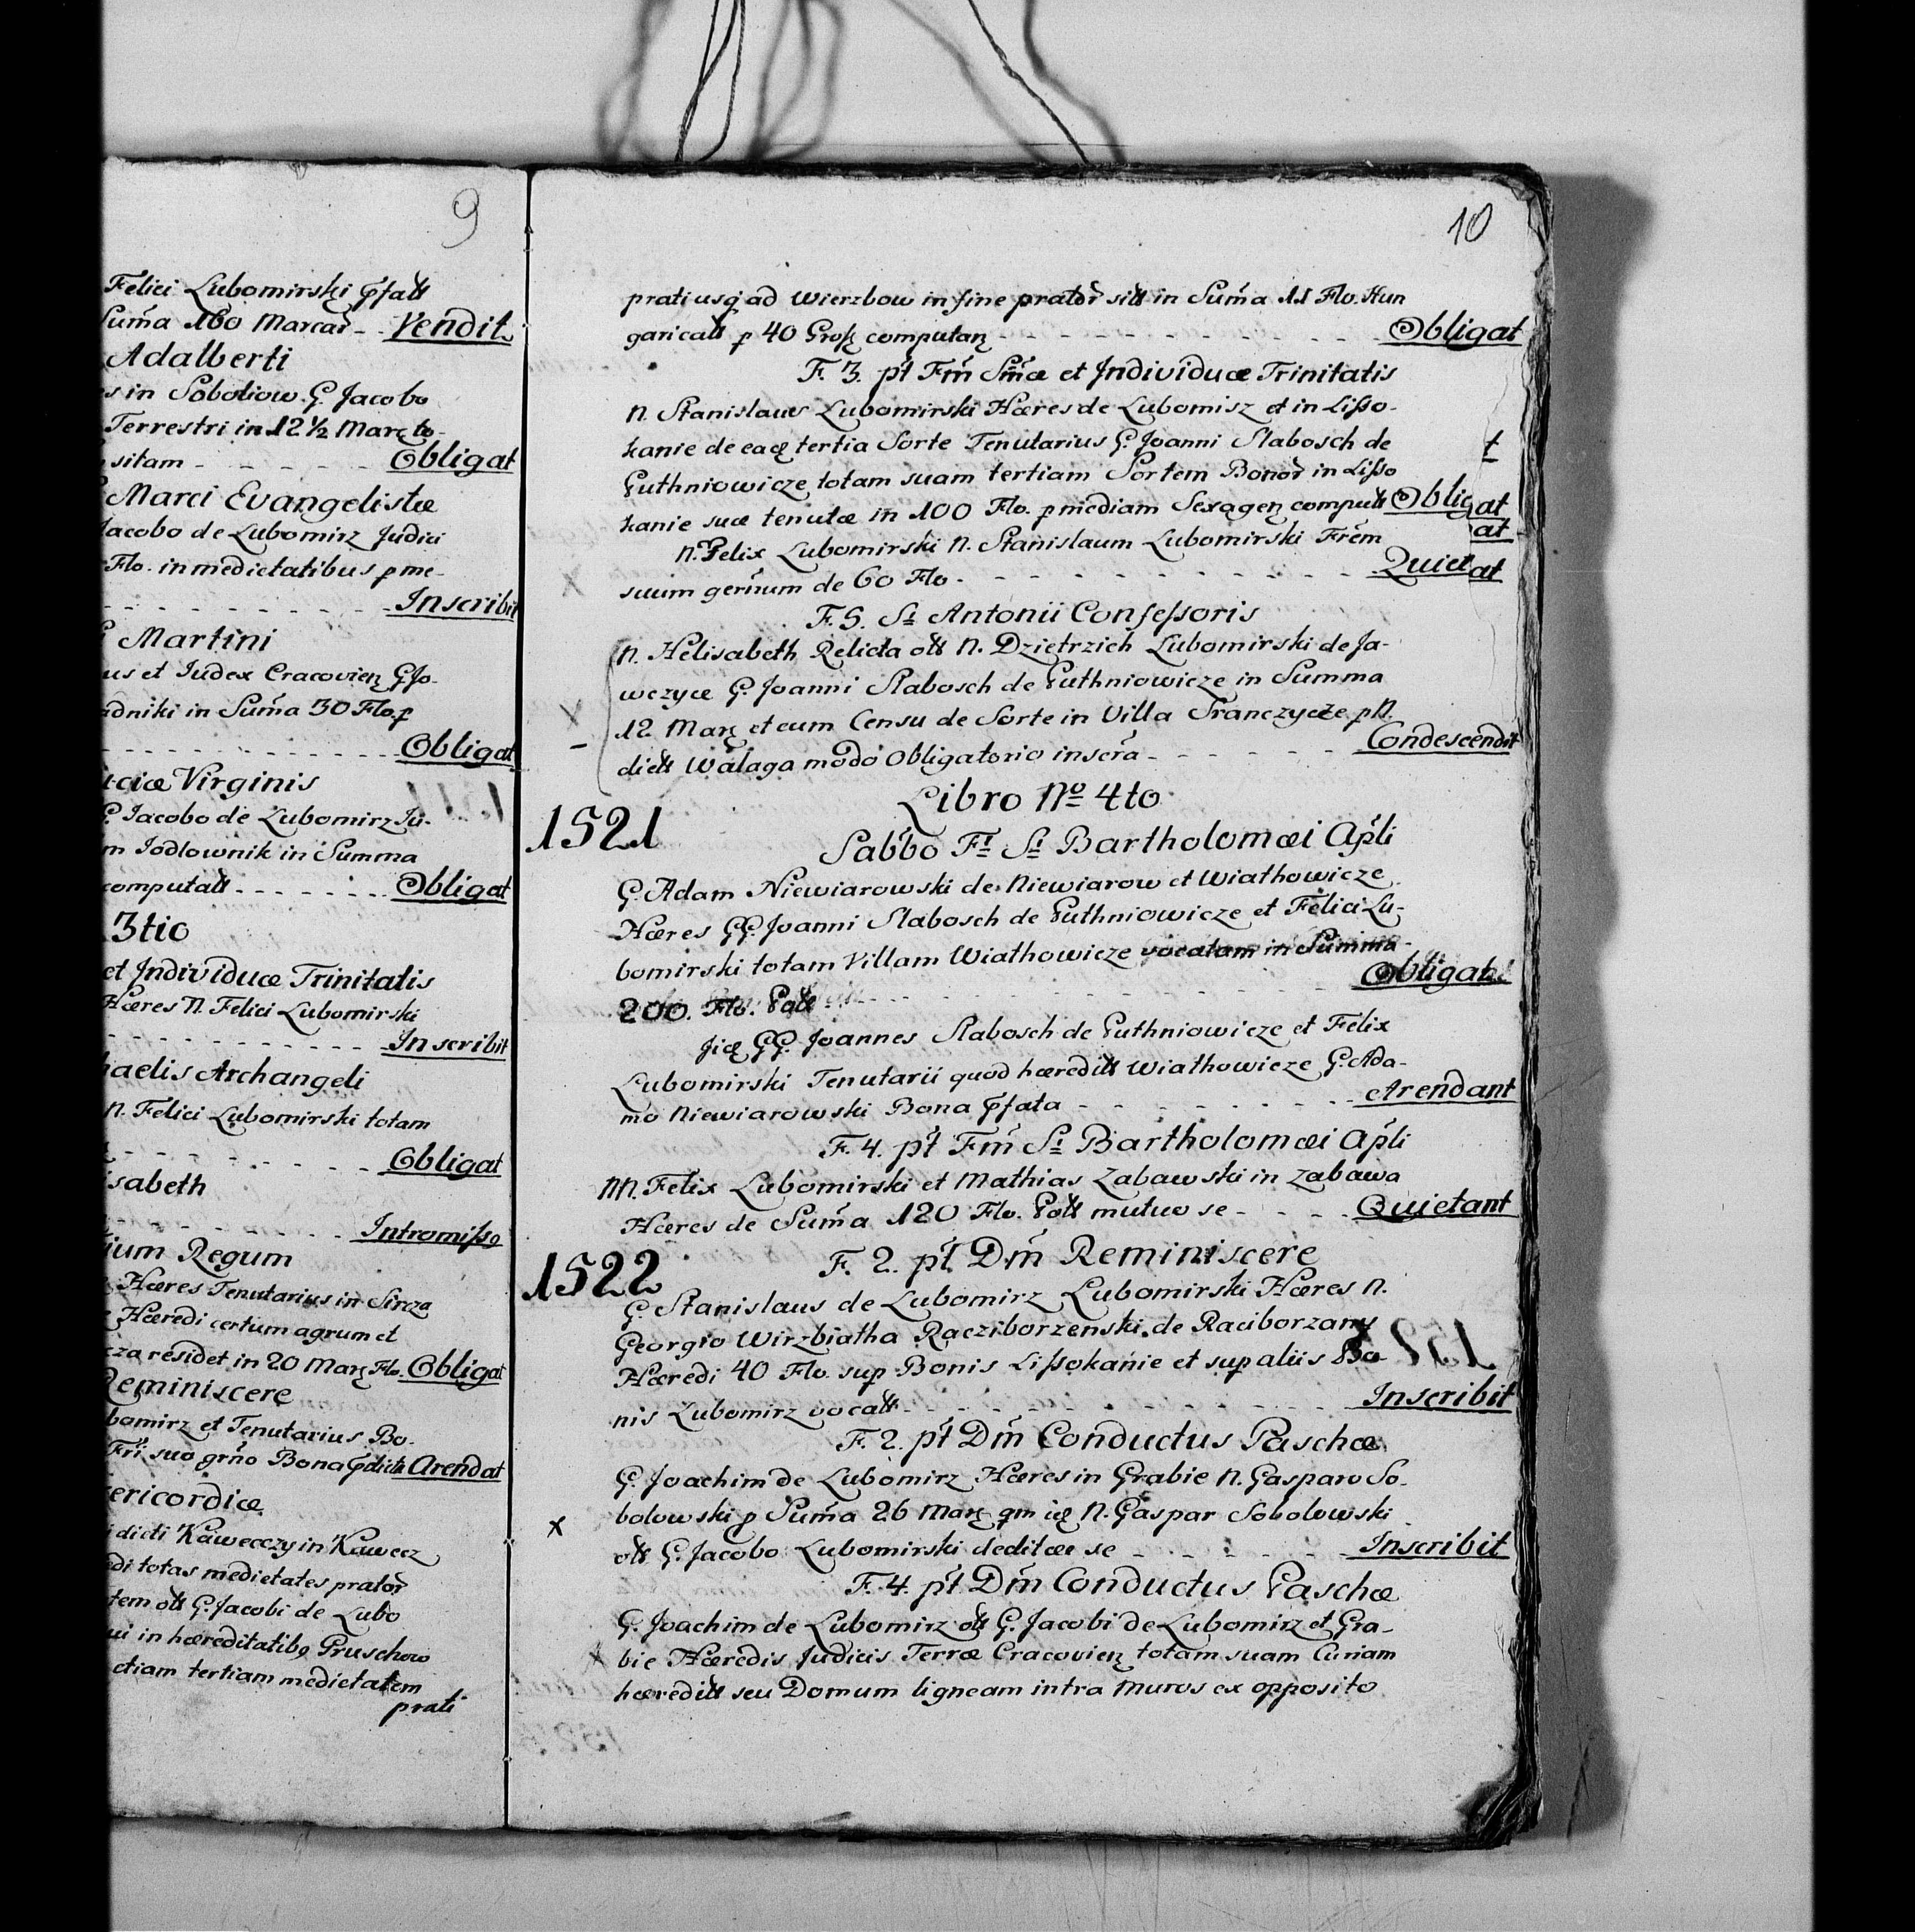 9
Felici Lubomirski pfatt
Suma 160 Marcar - - Vendit
Adalberti
s in Soboliow G. Jacobo
Terrestri in 12 1/2 Marc to-
sitam - - - - - Obligat
Marci Evangelistæ
Jacobo de Lubomirz Judici
Flo. in medietatibus p me-
- - - - - - - - - - Inscribit
Martini
us et Iudex Cracovien G Jo-
adniki in Suma 30 Flo. p
- - - - - - - - - - Obligat
ciæ Virginis
G. Jacobo de Lubomirz Iu-
m Jodlownik in Summa
computatt - - - - - - - Obligat
3tio
et Individuæ Trinitatis
Hæres N. Felici Lubomirski
- - - - - - - - - - Inscribit
haelis Archangeli
N. Felici Lubomirski totam
- - - - - - - - - Obligat
isabeth
- - - - - - - - - Intromisso
ium Regum
Hæres Tenutarius in Sircza
Hæredi certum agrum et
za residet in 20 Marz Flo. Obligat
Reminiscere
bomirz et Tenutarius Bo-
Fri suo grno Bona pdicta Arendat
ericordiæ
dicti Kawecczy in Kawecz
edi totas medietates prator
tem ott G. Jacobi de Lubo
ui in hæreditatibq Pruschow
etiam tertiam medietatem
prati
10
prati usq ad Wierzbow in fine prator sitt in Suma 11 Flo. Hun
garicatt p 40 Gross computan - - - - - - - - - - Obligat
F. 3. pt Fm Smæ et Individuæ Trinitatis
N. Stanislaus Lubomirski Hæres de Lubomisz et in Lisso-
kanie de eaq tertia Sorte Tenutarius G. Joanni Slabosch de
Puthniowicze totam suam tertiam Sortem Bonor in Lisso
kanie suæ tenutæ in 100 Flo. p mediam Sexagen computt Obligat
N. Felix Lubomirski N. Stanislaum Lubomirski Frem
suum germum de 60 Flo - - - - - - - - - - - Quietat
F. 5. St Antonii Confessoris
N. Helisabeth Relicta ott N. Dzietrzich Lubomirski de Ja-
wczyce G. Joanni Slabosch de Puthniowicze in Summa
12 Marz et cum Censu de Sorte in Villa Franczycze p N.
dictt Walaga modo Obligatorio inscra - - - - - - Condescendit
Libro No 4to
1521
Sabbo Ft St Bartholomæi Apli
G. Adam Niewiarowski de Niewiarow et Wiathowicze
Hæres GG. Joanni Slabosch de Puthniowicze et Felici Lu-
bomirski totam Villam Wiathowicze vocatam in Summa
200. Flo. Poll - - - - - - - - - - - Obligat
Jiq GG. Joannes Slabosch de Puthniowicze et Felix
Lubomirski Tenutarii quod hæreditt Wiathowicze G. Ada-
mo Niewiarowski Bona pfata - - - - - - - - Arendant
F. 4. pt Fm St Bartholomæi Apli
NN. Felix Lubomirski et Mathias Zabawski in Zabawa
Hæres de Suma 120 Flo. Poll mutuo se - - - - Quietant
1522
F. 2. pt Dm Reminiscere
G. Stanislaus de Lubomirz Lubomirski Hæres N.
Georgio Wirzbiatha Racziborzenski de Raciborzany
Hæredi 40 Flo. sup Bonis Lissokanie et sup aliis Bo-
nis Lubomirz vocatt - - - - - - - - - - - Inscribit
F. 2. pt Dm Conductus Paschæ
G. Joachim de Lubomirz Hæres in Grabie N. Gasparo So-
bolowski p Suma 26 Marz qm iq N. Gaspar Sobolowski
ott G. Jacobo Lubomirski deditæ se - - - - - - Inscribit
F. 4. pt Dm Conductus Paschæ
G. Joachim de Lubomirz ott G. Jacobi de Lubomirz et Gra-
bie Hæredis Judicis Terræ Cracovien totam suam Curiam
hæreditt seu Domum ligneam intra Muros ex opposito